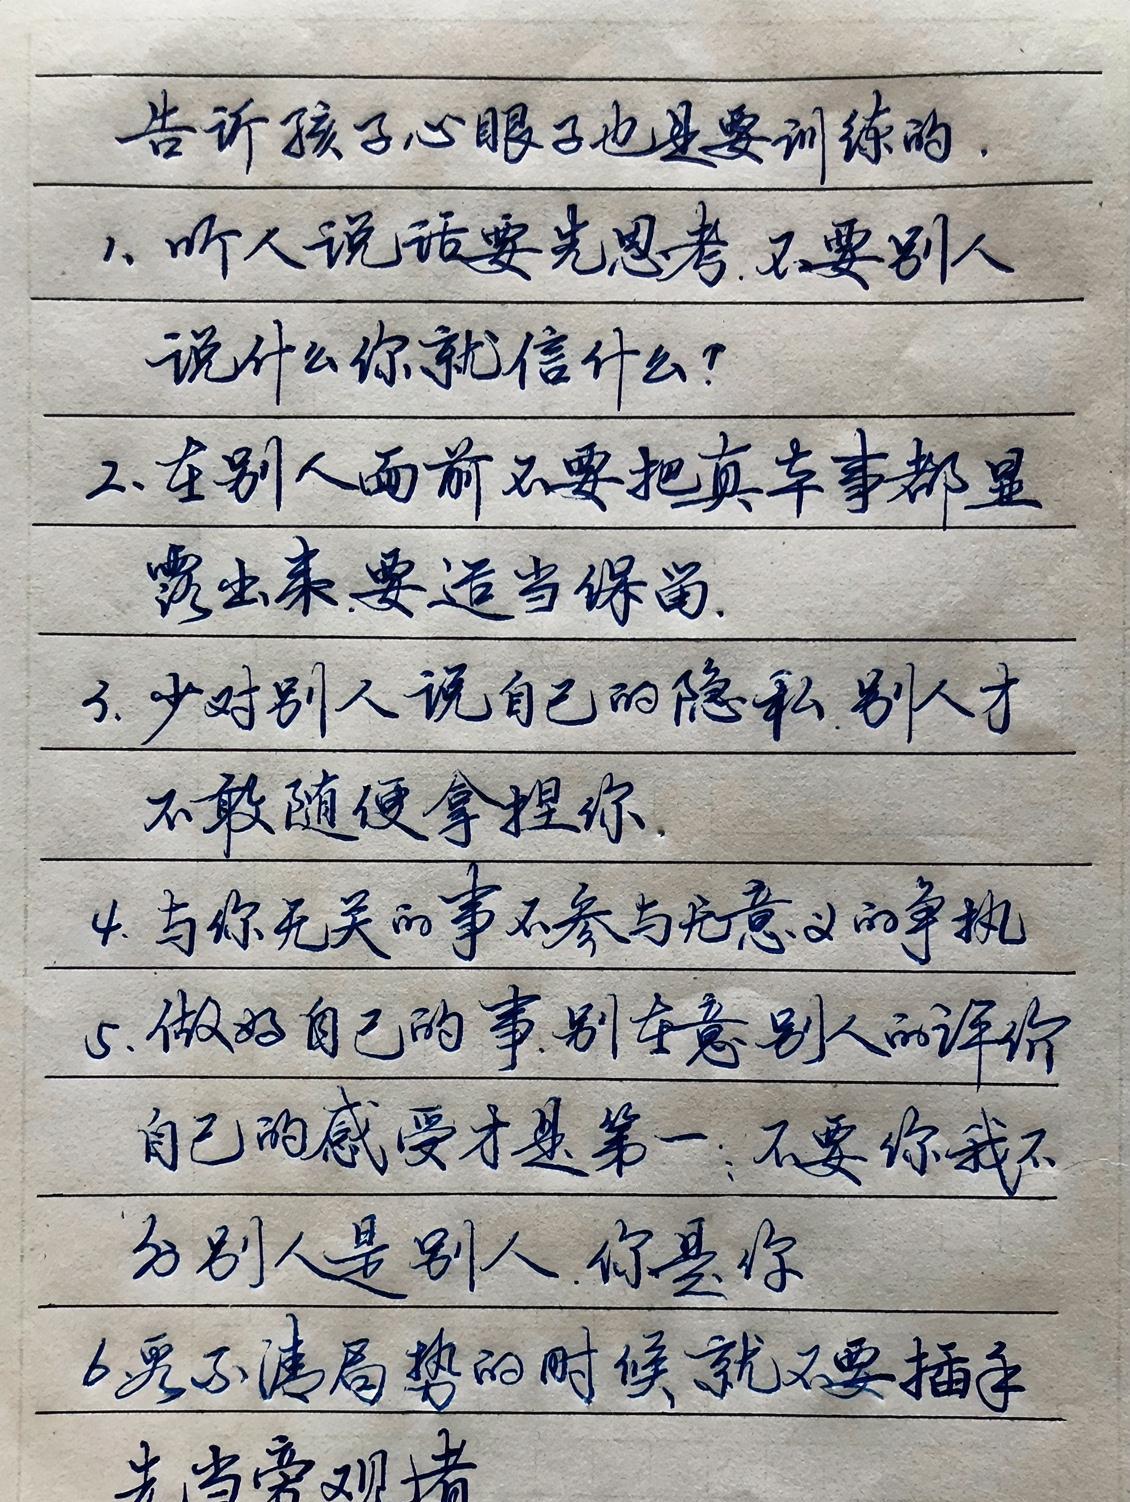 告诉孩子心眼子也是要训练的.
1、听人说话要先思考.不要别人
说什么你就信什么?
2、在别人面前不要把真本事都显
露出来.要适当保留.
3.少对别人说自己的隐私.别人才
不敢随便拿捏你.
4.与你无关的事不参与无意义的争执
5.做好自己的事.别在意别人的评价
自己的感受才是第一;不要你我不
分别人是别人.你是你
6看不清局势的时候就不要插手
先当旁观者